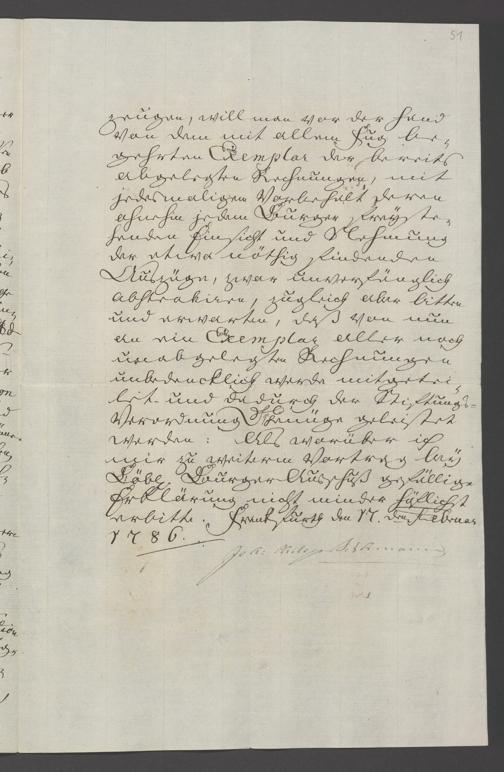 51
zeugen, will man vor der Hand
von dem mit allem Fug be-
gehrten Exemplar der bereits
abgelegten Rechnungen, mit
jedesmaligen Vorbehalt deren
ohnehin jedem Burger freyste-
henden Einsicht und Nehmung
der etwa nöthig findenden
Auszüge, zwar unverfänglich
abstrahiren, zugleich aber bitten
und erwarten, daß von nun
an ein Exemplar aller noch
unabgelegten Rechnungen
unbedencklich werde mitgetei-
let und dadurch der Stiftungs-
Verordnung Genüge geleistet
werden: Als worüber ich
mir zu weiterm Vortrag bey
Löbl. Burger Ausschuß gefällige
Erklärung nicht minder höflichst
erbitte. Franckfurth den 17. Februar
1786.
Joh.